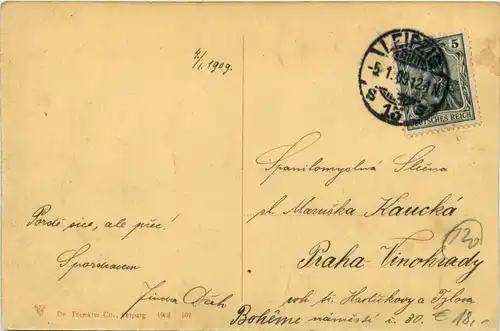 4/1 1909.
LEIPZIG
-5.1.09.12-1N.
S 13 S
5
DEUTSCHES REICH
Spanilomyslná Slečna
sl. Maruška Kaucká
Praha-Vinohrady
roh tř. Havlíčkovy a Tylova
Bohême náměstí č. 30.
Pozdě sice, ale přec!
S pozdravem
Dr. Trenkler Co., Leipzig 1908 507
120
€ 18,-